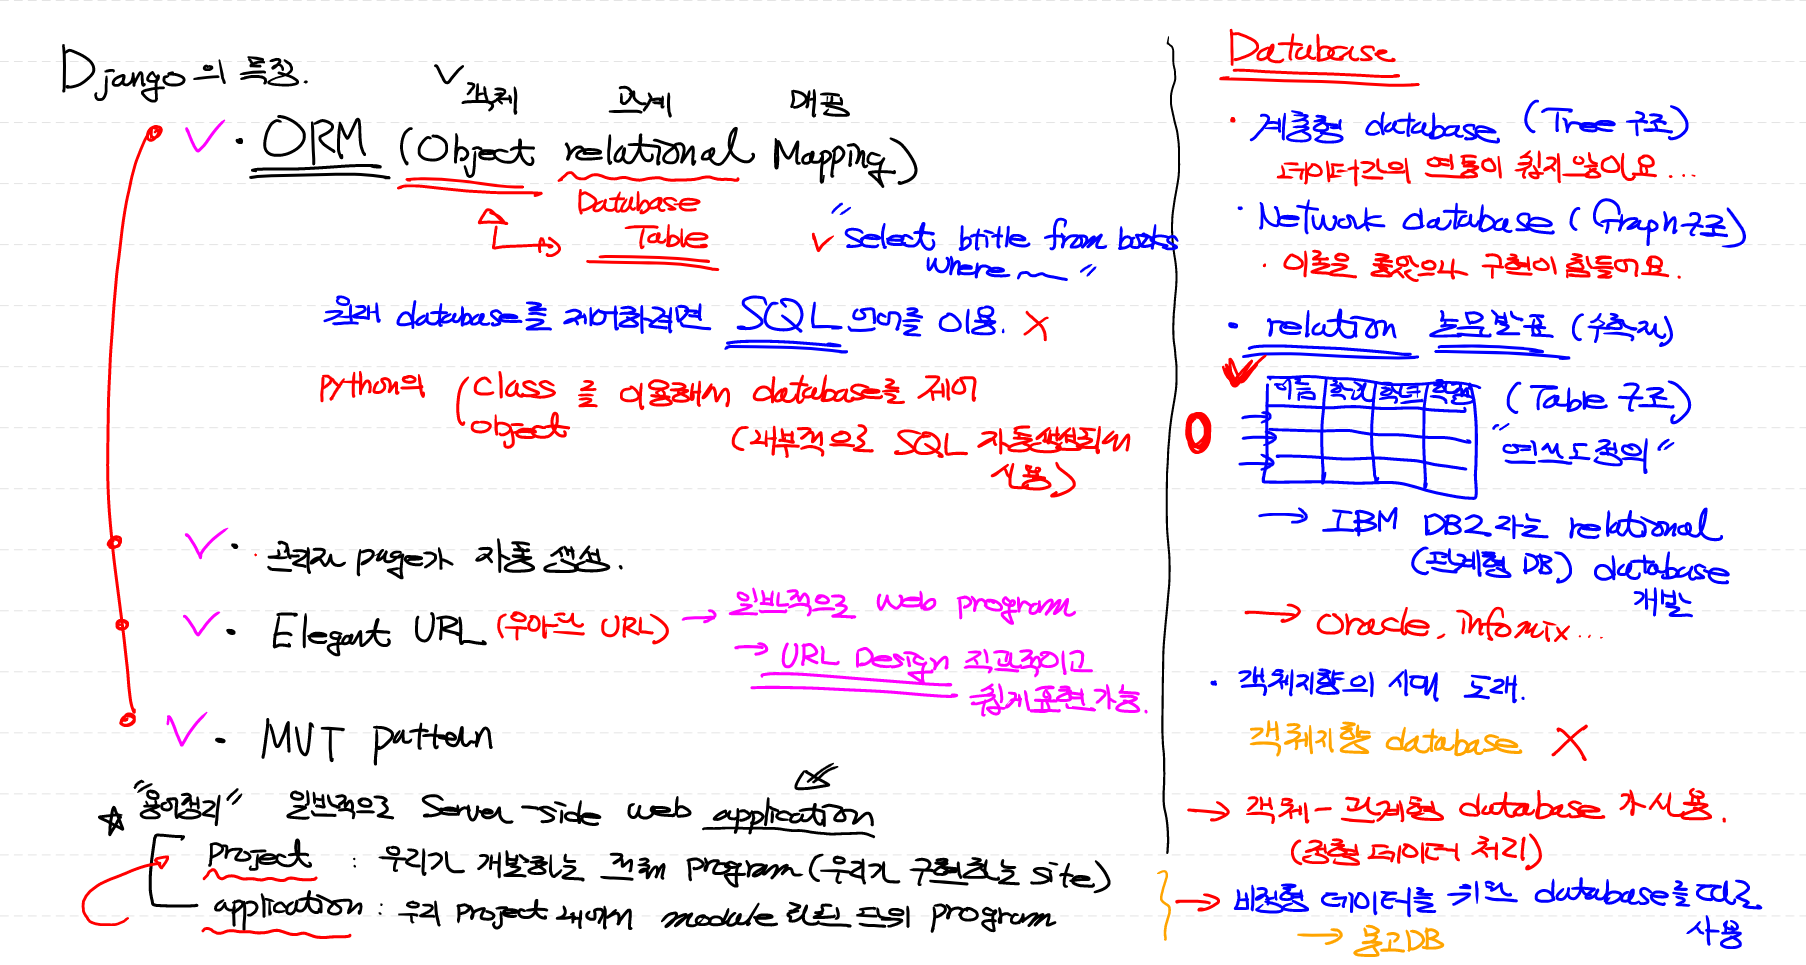 Django의 특징.
객체 관계 매핑
· ORM (Object relational Mapping)
Database
Table
"select btitle from books
where ~ "
원래 database를 제어하려면 SQL 언어를 이용. X
python의 (class 를 이용해서 database를 제어
object
(내부적으로 SQL 자동생성되서
사용)
· 관리자 page가 자동 생성.
· Elegant URL (우아한 URL) → 일반적으로 web program
→ URL Design 직관적이고
쉽게 표현가능.
· MVT pattern
☆ "용어정리" 일반적으로 Server-side web application
project : 우리가 개발하는 전체 program (우리가 구현하는 site)
application : 우리 project 내에서 module화된 단위 program
Database
· 계층형 database (Tree 구조)
데이터간의 연동이 쉽지않아요...
· Network database (Graph구조)
· 이론은 좋았으나 구현이 힘들어요.
· relation 논문발표 (수학자)
이름 학과 학년 학점
(Table 구조)
→ IBM DB2라는 relational
(관계형 DB) database
개발
→ oracle, infomix...
· 객체지향의 시대 도래.
객체지향 database X
→ 객체-관계형 database 가 사용.
(정형 데이터 처리)
→ 비정형 데이터를 위한 database를 따로
사용
→ 몽고DB